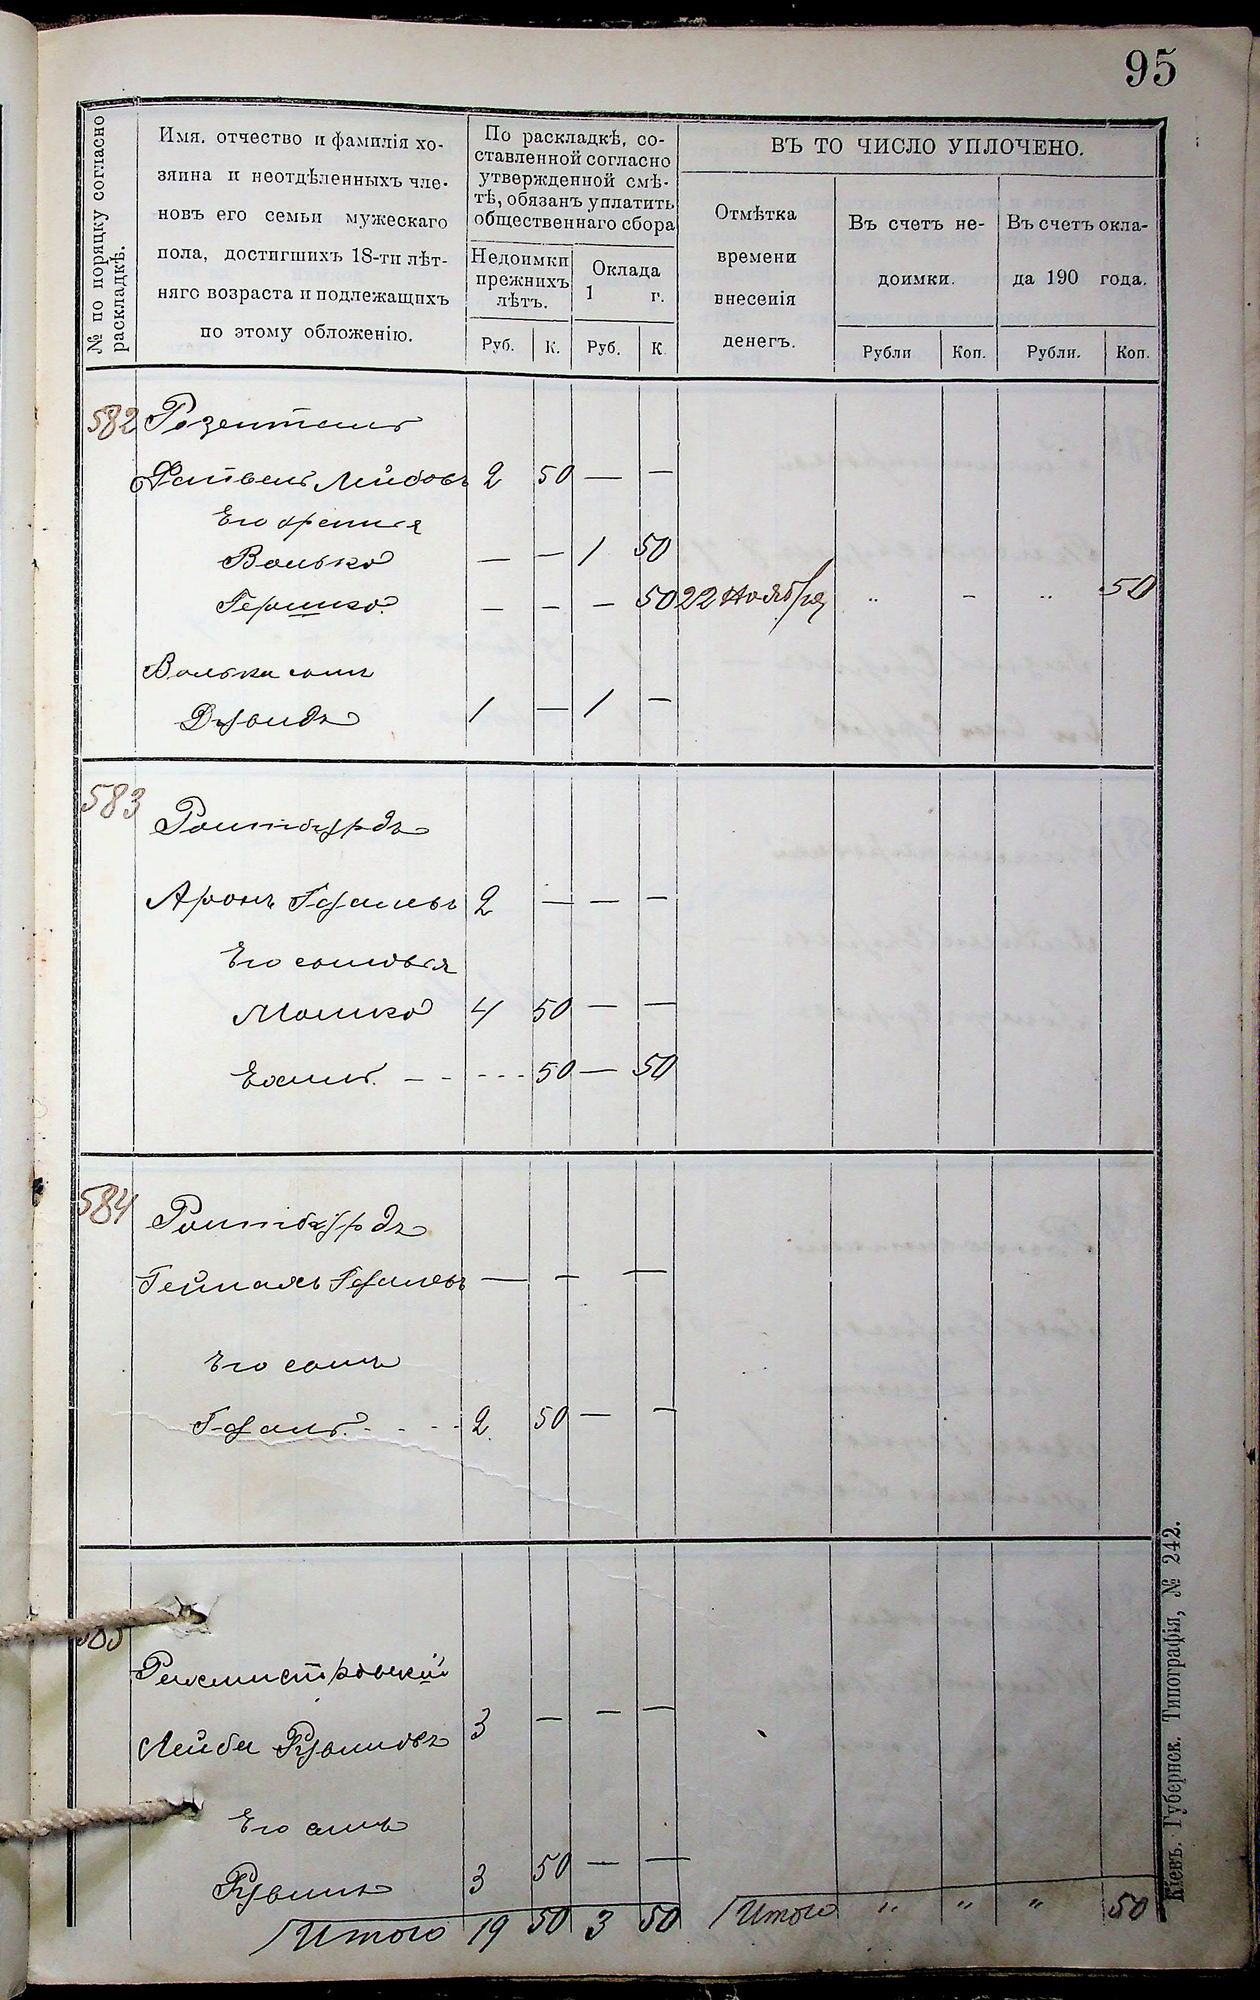 95
№ по порядку согласно раскладкѣ.
Имя, отчество и фамилія хо-
зяина и неотдѣленныхъ чле-
новъ его семьи мужескаго
пола, достигшихъ 18-ти лѣт-
няго возраста и подлежащихъ
по этому обложенію.
По раскладкѣ, со-
ставленной согласно
утвержденной смѣ-
тѣ, обязанъ уплатить
общественнаго сбора
Недоимки
прежнихъ
лѣтъ.
Оклада
1 г.
Руб. К. Руб. К
ВЪ ТО ЧИСЛО УПЛОЧЕНО.
Отмѣтка
времени
внесенія
денегъ.
Въ счетъ не-
доимки.
Въ счетъ окла-
да 190 года.
Рубли Коп. Рубли. Коп.
582 Розентель
Файвель Лейбовъ 2 50 — —
Его братья
Волько — — 1 50
Гершко. — — — 50 22 Ноября „ - „ 50
Волька сынъ
Дувидъ 1 — 1 —
583 Ройтбурдъ
Аронъ Гдалевъ 2 — — —
Его сыновья
Мошко 4 50 — —
Ехиль. - - - - - 50 — 50
584 Ройтбурдъ
Гейнахъ Гдалевъ — — —
Его сынъ
Гдаль. - - - - 2 50 — —
585
Рахмистровскій
Лейба Рувиновъ 3 — — —
Его сынъ
Рувинъ 3 50 — —
Итого 19 50 3 50 Итого „ „ „ 50
Кіевъ. Губернск. Типографія, № 242.